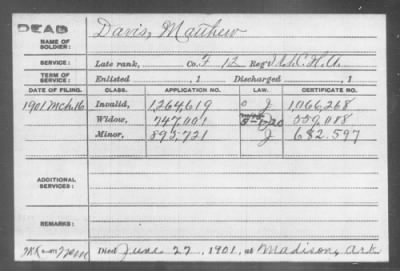 DEAD
NAME OF SOLDIER: Davis, Matthew
SERVICE: Late rank, Co. F 12 Reg't U.S.C.H.A.
TERM OF SERVICE: Enlisted , 1 Discharged , 1
DATE OF FILING. CLASS. APPLICATION NO. LAW. CERTIFICATE NO.
1901 Mch. 16 Invalid, 1,264,619 J 1,066,268
Widow, 747,001 559,088
Minor, 892,721 J 682.597
ADDITIONAL SERVICES:
REMARKS:
Died June 27, 1901, at Madison, Ark